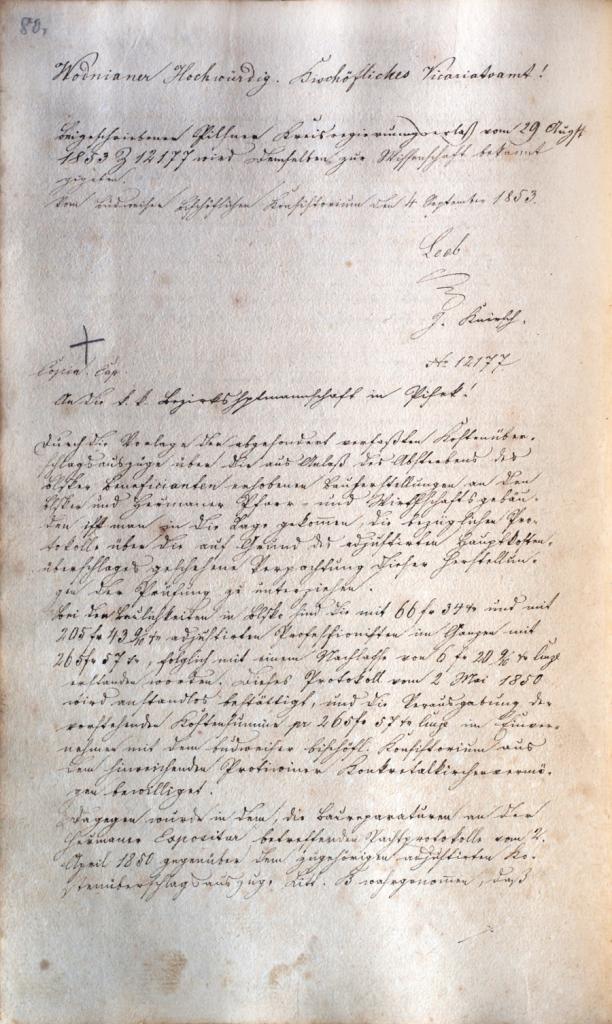 80.
Wodnianer Hochwürdig. Bischöfliches Vicariatsamt!
Beigeschriebener Pilsner Kreisregierungserlaß vom 29 Augst
1853 Z 12177 wird demselben zur Wissenschaft bekannt
gegeben.
Vom budweiser bischöflichen Konsistorium den 4 September 1853.
Leeb
J. Knirsch.
Copia. N: 12177
An die k. k. Bezirkshptmannschaft in Pisek!
Durch die Vorlage der abgesondert verfaßten Kostenüber-
schlagsauszüge über die aus Anlaß des Absterbens des
Beneficianten erhobenen Bauherstellungen an den
und Hermaner Pfarr- und Wirthschaftsgebäu-
den ist man in die Lage gekommen, die bezüglichen Pro-
tokolle über die auf Grund des adjustirten Hauptkosten-
überschlages geschehene Verpachtung dieser Herstellun-
gen der Prüfung zu unterziehen.
Bei den Baulichkeiten in sind die mit 66 fr 34 xr und mit
205 fr 43 xr adjustirten Professionisten im Ganzen mit
265 fr 57 xr, folglich mit einem Nachlasse von 6 fr 20 xr CMz
erstanden worden. Dieses Protokoll vom 2. Mai 1850
wird anstandlos bestättigt, und die Verausgabung der
vorstehenden Kostensumme pr 265 fr 57 xr CMz im Einver-
nehmen mit dem budweiser bischöfl. Konsistorium aus
dem hinreichenden Protiwiner Konkretalkirchenvermö-
gen bewilliget.
Dagegen wurde in dem, die Baureparaturen an der
Hermaner Expositur betreffenden Pachtprotokolle vom 2.
April 1850 gegenüber dem zugehörigen adjustirten Ko-
stenüberschlagsauszuge Litt. B wahrgenommen, daß